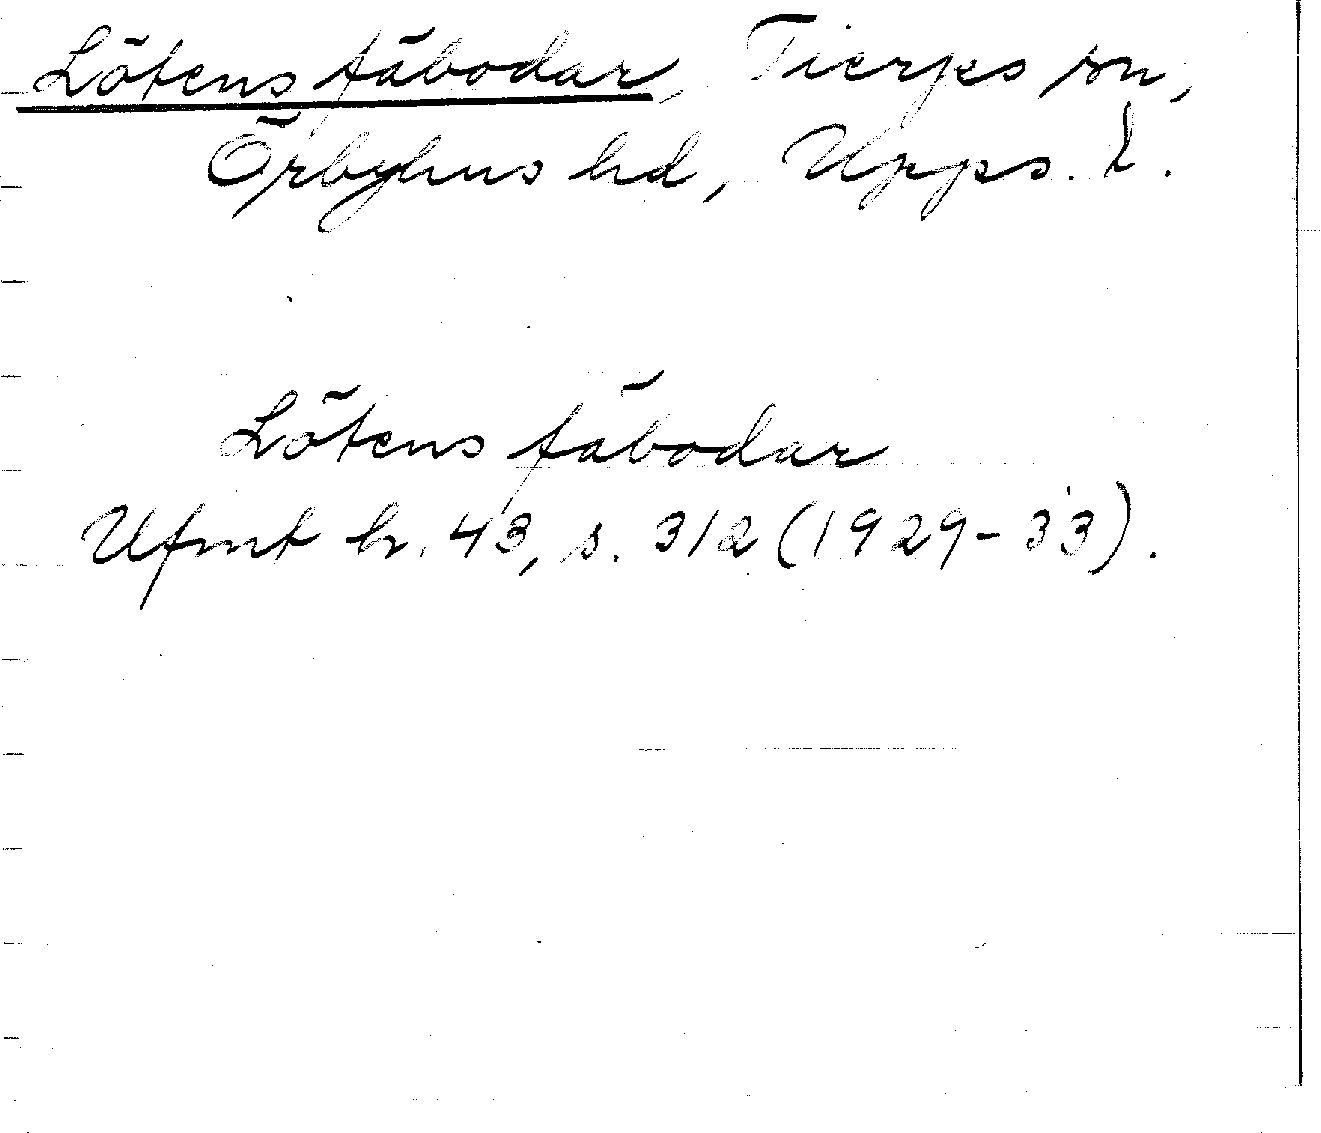 Lötens fäbodar, Tierps sn,
Örbyhus hd, Upps. l.
Lötens fäbodar
Ufmt h. 43, s. 312 (1929-33).